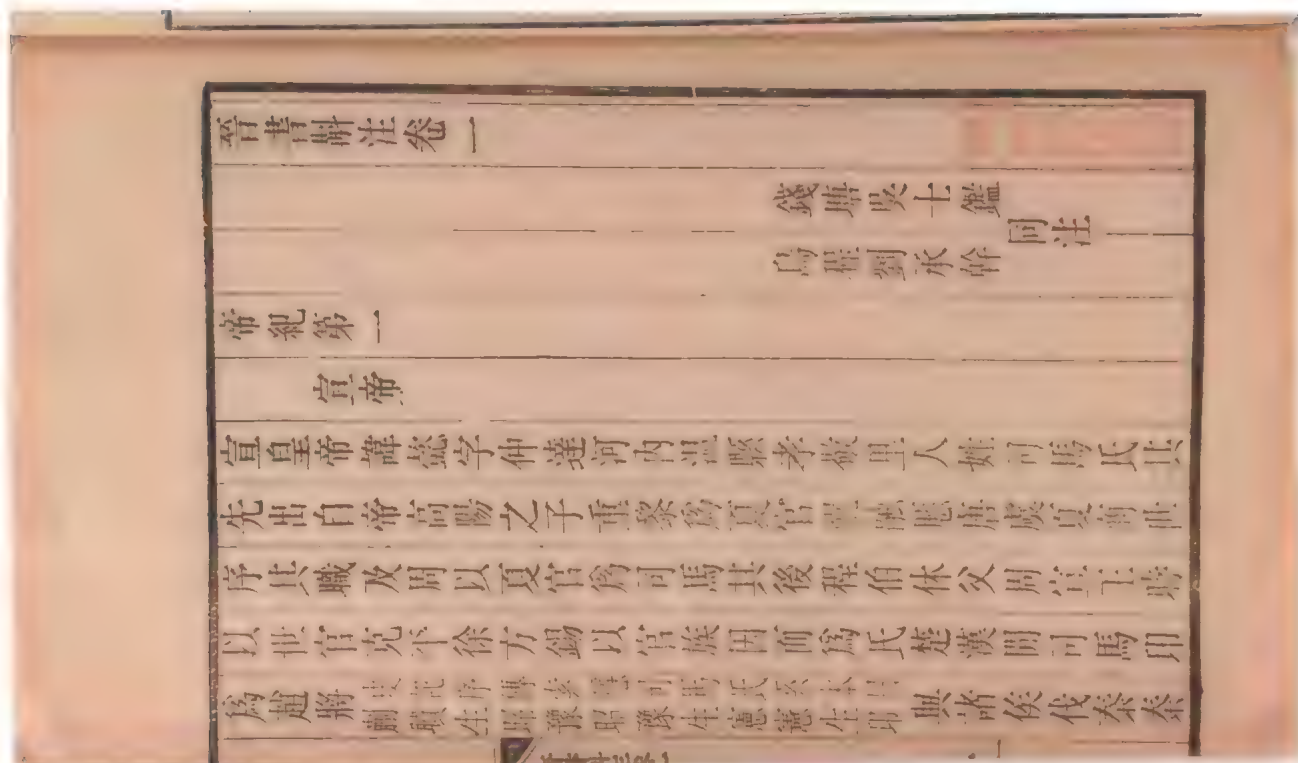 晉書斠注卷一
錢塘吳士鑑
烏程劉承幹
同注
帝紀第一
宣帝
宣皇帝諱懿字仲達河內溫縣孝敬里人姓司馬氏其
先出自帝高陽之子重黎爲夏官祝融歷唐虞夏商世
序其職及周以夏官爲司馬其後程伯休父周宣王時
以世官克平徐方錫以官族因而爲氏楚漢間司馬卬
爲趙將
與諸侯伐秦秦